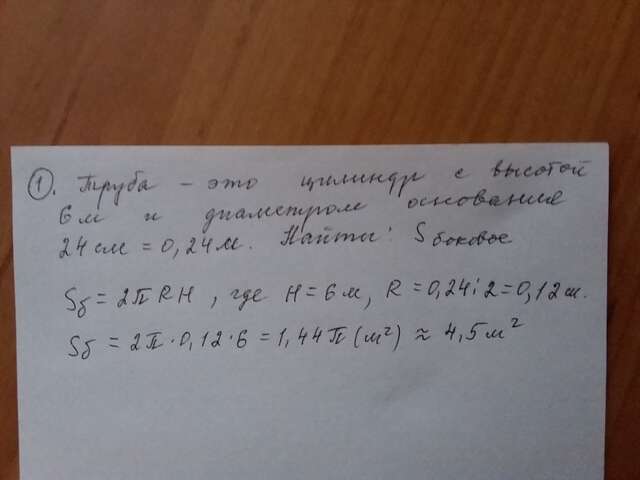 1. Труба – это цилиндр с высотой
6 м и диаметром основание
24 см = 0,24 м. Найти: S боковое
Sб = 2π R H , где H = 6 м, R = 0,24 : 2 = 0,12 м.
Sб = 2π · 0,12 · 6 = 1,44π (м²) ≈ 4,5 м²